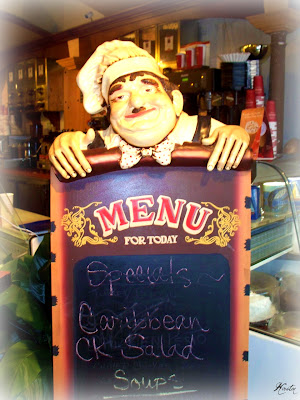 MENU
FOR TODAY
Specials ~
Caribbean
CK Salad
Soup-